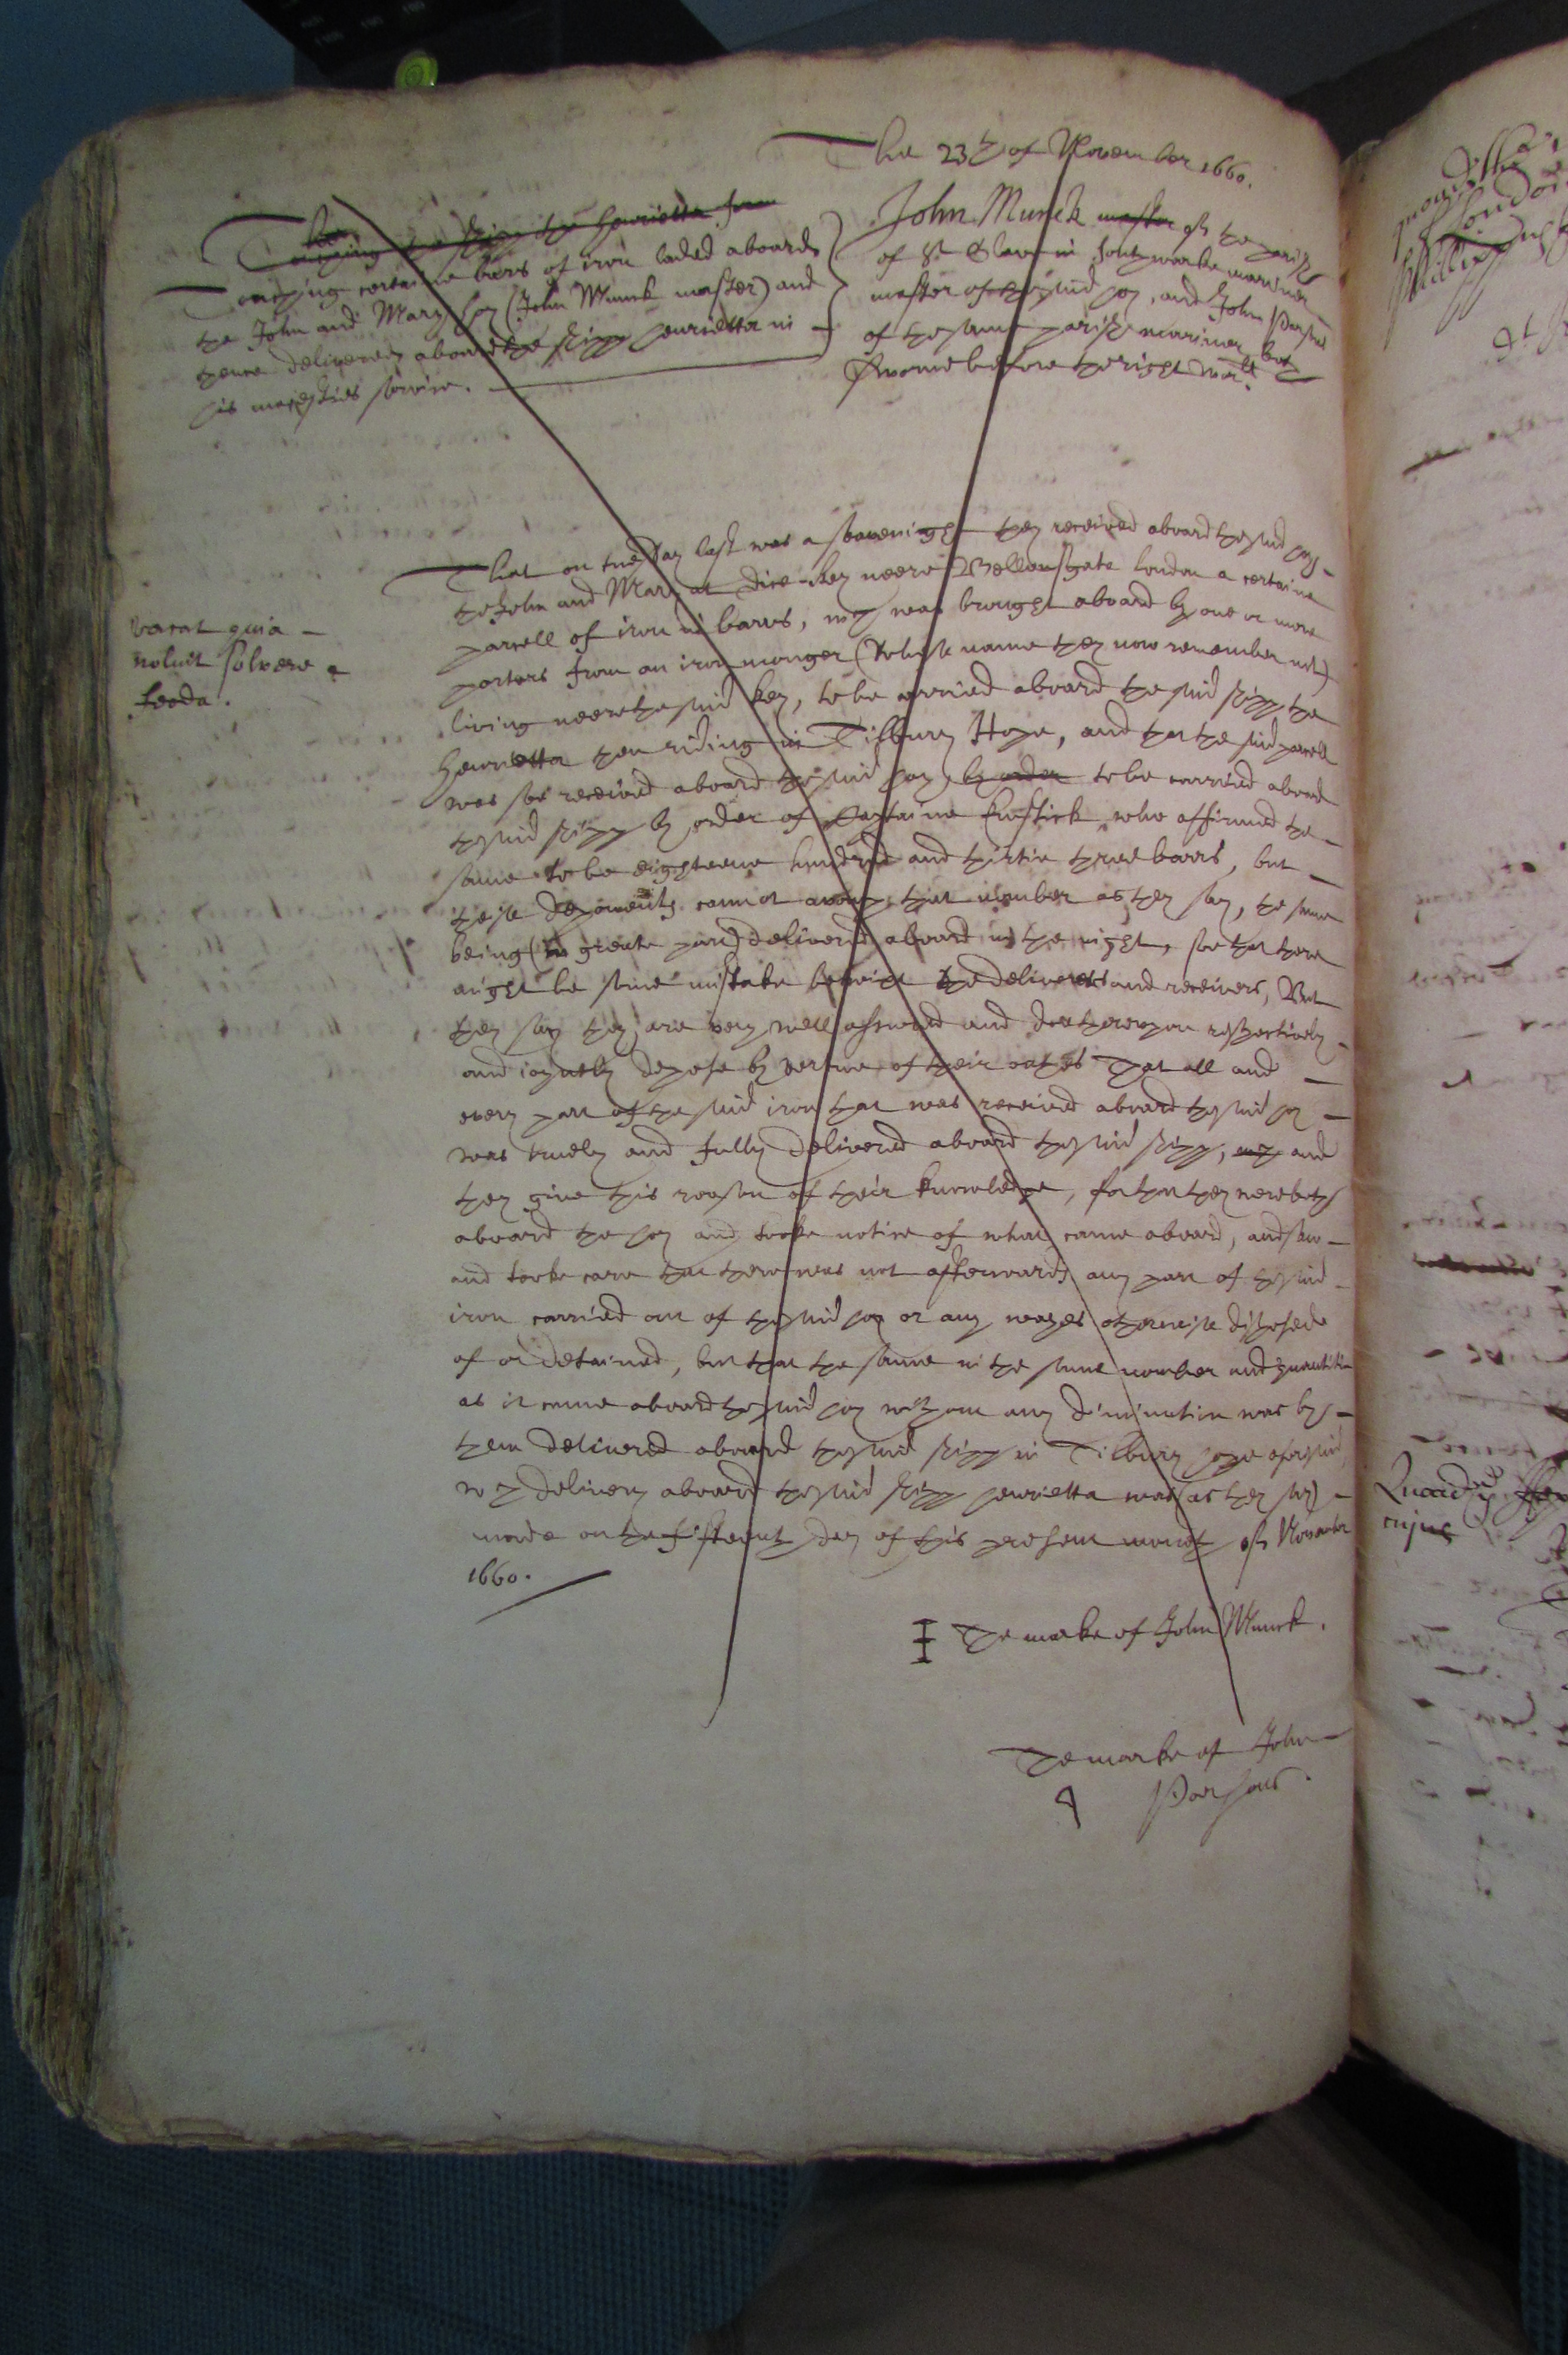 The 23th of November 1660.
touching the shipp the Henrietta
Touching certaine barrs of iron laded aboard
the John and Mary hoy (John Munck master) and
thence delivered aboard the shipp Henrietta in
his majesties service.
John Munck master of the parish
of St Olave in Southwarke mariner
master of the said hoy, and John Parsons
of the same parish mariner both
Sworne before the right worll.
That on tuesday last was a seavenight they received aboard the said hoy
the John and Mary at Dice key neere Bellensgate London a certaine
parcell of iron in barrs, wch was brought aboard by one or more
porters from an iron monger (whose name they now remember not)
living neere the said key, to be carried aboard the said shipp the
Henrietta then riding in Tilbury Hope, and that the said parcell
was soe received aboard the said hoy by order to be carried aboard
the said shipp by order of Captaine who affirmed the
same to be eighteene hundred and thirtie three barrs, but
these deponents cannot avouch that number as they say, the same
being (in greate part) delivered aboard in the night, soe that there
might be some mistake betwixt the deliverers and receivers, But
they say they are very well assured and doe thereupon respectively
and joyntly depose by vertue of their oathes That all and
every part of the said iron that was received aboard the said hoy
was truely and fully delivered aboard the said shipp, wch and
they give this reason of their knowledge, for that they were both
aboard the hoy and tooke notice of what came aboard, and saw
and tooke care that there was not afterwards any part of the said
iron carried out of the said hoy or any wayes otherwise disposed
of or detained, but that the same in the same number and quantitie
as it came aboard the said hoy without any diminution was by
them delivered aboard the said shipp in Tilbury hope aforesaid,
wch delivery aboard the said shipp Henrietta was (as they say)
made on the fifteenth day of this present moneth of November
1660.
vacat quia
noluit solvere
feoda.
The marke of John Munck.
The marke of John
Parsons.
cujus